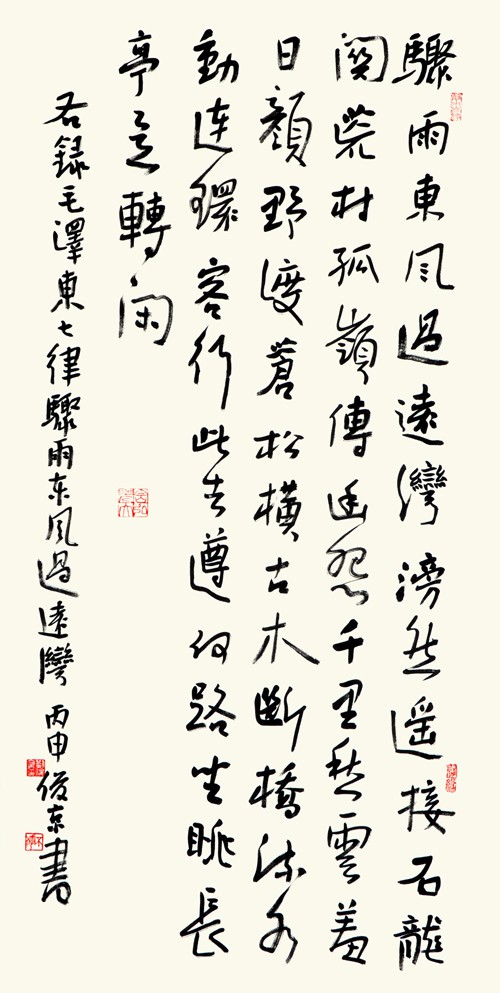 驟雨東风過遠灣滂然遥接石龍
関荒村孤嶺傳幽怨千里愁雲羞
日顔野渡蒼松横古木断橋流水
動连環客行此去遵何路坐眺長
亭意轉闲
右録毛澤東七律驟雨东风過遠灣 丙申俊京書